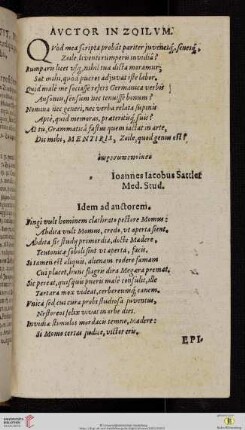 AVCTOR IN ZOILVM.
QVod mea scripta probāt pariter juvenesq́;, senesq́;,
Zoile, liventi rumperis invidiâ?
Rumparis licet usq;, nihil tua dicta moramur,
Sat mihi, quod pueros adjuvat iste labor.
Quid malè me sociasse refers Germanica verbis
Ausonijs,
Nomina
Aptè, quod memoras, præteritiq́;, fuit?
At tu, Grammaticâ fassus quem tactat in arte,
Dic mihi, MENTIRIS, Zoile, quod genus est?
Ioannes Iacobus Sattler
Med. Stud.
Idem ad auctorem.
Fingi vult hominem clathrato pectore Momus:
Abdita vult Momus, credo, ut aperta sient.
Abdita sic studij primordia, docte Madere,
Teutonica soboli sint ut aperta, facis.
Si tamen est aliquis, alienum rodere famam
Cui placet, hunc stagra dira Megæra premat.
Sic pereat, quisquis pueris malè consulit, ille
Tartara mox videat, cerbereumq́; canem.
Vnica sed cui cura probis studiosa juventus,
Nestoreos felix vivat in orbe dies.
Invidiæ stimulos mordacis temne, Madere:
Momo tertas judice, victor eris.
EPI-